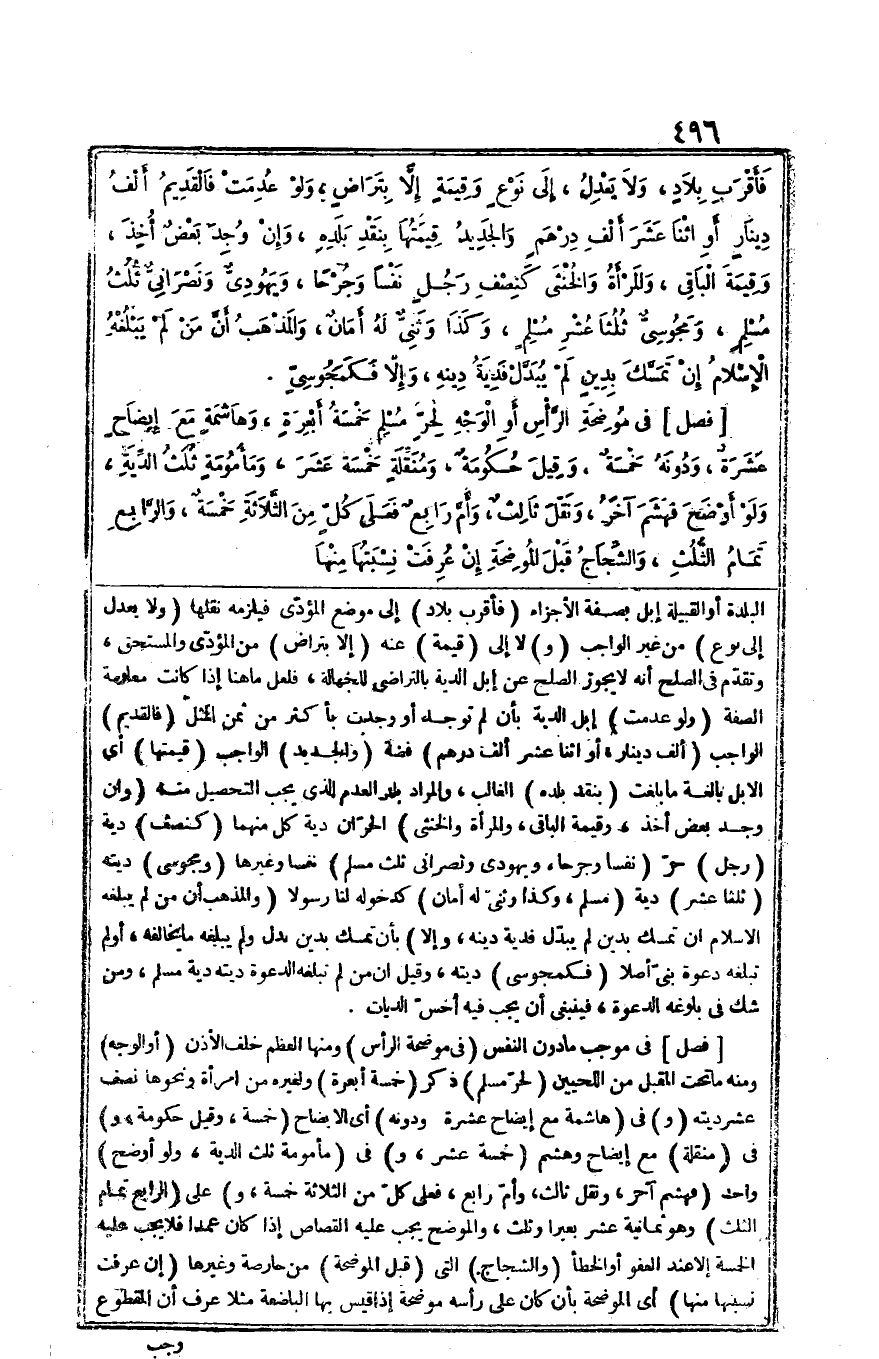 ٤٩٦
فَأَقْرَبِ بِلَادٍ ، وَلَا يَعْدِلُ ، إِلَى نَوْعٍ وَقِيمَةٍ إِلَّا بِتَرَاضٍ ، وَلَوْ عُدِمَتْ فَالْقَدِيمُ أَلْفُ
دِينَارٍ أَوِ اثْنَا عَشَرَ أَلْفَ دِرْهَمٍ وَالْجَدِيدُ قِيمَتُهَا بِنَقْدِ بَلَدِهِ ، وَإِنْ وُجِدَ بَعْضٌ أُخِذَ ،
وَقِيمَةَ الْبَاقِى ، وَالْمَرْأَةُ وَالْخُنْثَى كَنِصْفِ رَجُلٍ نَفْسًا وَجُرْحًا ، وَيَهُودِىٌّ وَنَصْرَانِىٌّ ثُلُثُ
مُسْلِمٍ ، وَمَجُوسِىٌّ ثُلُثَا عُشْرِ مُسْلِمٍ ، وَكَذَا وَثَنِىٌّ لَهُ أَمَانٌ ، وَالْمَذْهَبُ أَنَّ مَنْ لَمْ يَبْلُغْهُ
الْإِسْلَامُ إِنْ تَمَسَّكَ بِدِينٍ لَمْ يُبَدَّلْ فَدِيَةُ دِينِهِ ، وَإِلَّا فَكَمَجُوسِىٍّ .
[ فصل ] فى مُوضِحَةِ الرَّأْسِ أَوِ الْوَجْهِ لِحُرٍّ مُسْلِمٍ خَمْسَةُ أَبْعِرَةٍ ، وَهَاشِمَةٍ مَعَ إِيضَاحٍ
عَشَرَةٌ ، وَدُونَهُ خَمْسَةٌ ، وَقِيلَ حُكُومَةٌ ، وَمُنَقِّلَةٍ خَمْسَةَ عَشَرَ ، وَمَأْمُومَةٍ ثُلُثُ الدِّيَةِ ،
وَلَوْ أَوْضَحَ فَهَشَمَ آخَرُ ، وَنَقَلَ ثَالِثٌ ، وَأَمَّ رَابِعٌ فَعَلَى كُلٍّ مِنَ الثَّلَاثَةِ خَمْسَةٌ ، وَالرَّابِعِ
تَمَامُ الثُّلُثِ ، وَالشِّجَاجُ قَبْلَ الْمُوضِحَةِ إِنْ عُرِفَتْ نِسْبَتُهَا مِنْهَا
البلدة أو القبيلة إبل بصفة الأجزاء ( فأقرب بلاد ) إلى موضع المؤدّى فيلزمه نقلها ( ولا يعدل
إلى نوع ) من غير الواجب ( و ) لا إلى ( قيمة ) عنه ( إلا بتراض ) من المؤدّى والمستحق ،
وتقدّم فى الصلح أنه لا يجوز الصلح عن إبل الدية بالتراضى للجهالة ، فلعل ما هنا إذا كانت معلومة
الصفة ( ولو عدمت ) إبل الدية بأن لم توجد أو وجدت بأكثر من ثمن المثل ( فالقديم )
الواجب ( ألف دينار ، أو اثنا عشر ألف درهم ) فضة ( والجديد ) الواجب ( قيمتها ) أى
الابل بالغة ما بلغت ( بنقد بلده ) الغالب ، والمراد بلد العدم الذى يجب التحصيل منه ( وان
وجد بعض أخذ ، وقيمة الباقى ، والمرأة والخنثى ) الحرّان دية كل منهما ( كنصف ) دية
( رجل ) حرّ ( نفسا وجرحا ، ويهودى ونصرانى ثلث مسلم ) نفسا وغيرها ( ومجوسى ) ديته
( ثلثا عشر ) دية ( مسلم ، وكذا وثنىّ له أمان ) كدخوله لنا رسولا ( والمذهب أن من لم يبلغه
الاسلام ان تمسك بدين لم يبدّل فدية دينه ، وإلا ) بأن تمسك بدين بدل ولم يبلغه ما يخالفه ، أو لم
تبلغه دعوة نبىّ أصلا ( فكمجوسى ) ديته ، وقيل ان من لم تبلغه الدعوة ديته دية مسلم ، ومن
شك فى بلوغه الدعوة ، فينبغى أن يجب فيه أخسّ الديات .
[ فصل ] فى موجب ما دون النفس ( فى موضحة الرأس ) ومنها العظم خلف الأذن ( أو الوجه )
ومنه ما تحت المقبل من اللحيين ( لحرّ مسلم ) ذكر ( خمسة أبعرة ) ولغيره من امرأة ونحوها نصف
عشر ديته ( و ) فى ( هاشمة مع إيضاح عشرة ودونه ) أى الايضاح ( خمسة ، وقيل حكومة ، و )
فى ( منقلة ) مع إيضاح وهشم ( خمسة عشر ، و ) فى ( مأمومة ثلث الدية ، ولو أوضح )
واحد ( فهشم آخر ، ونقل ثالث ، وأمّ رابع ، فعلى كلّ من الثلاثة خمسة ، و ) على ( الرابع تمام
الثلث ) وهو ثمانية عشر بعيرا وثلث ، والموضح يجب عليه القصاص إذا كان عمدا فلا يجب عليه
الخمسة إلا عند العفو أو الخطأ ( والشجاج ) التى ( قبل الموضحة ) من حارصة وغيرها ( إن عرفت
نسبتها منها ) أى الموضحة بأن كان على رأسه موضحة إذا قيس بها الباضعة مثلا عرف أن المقطوع
وجب